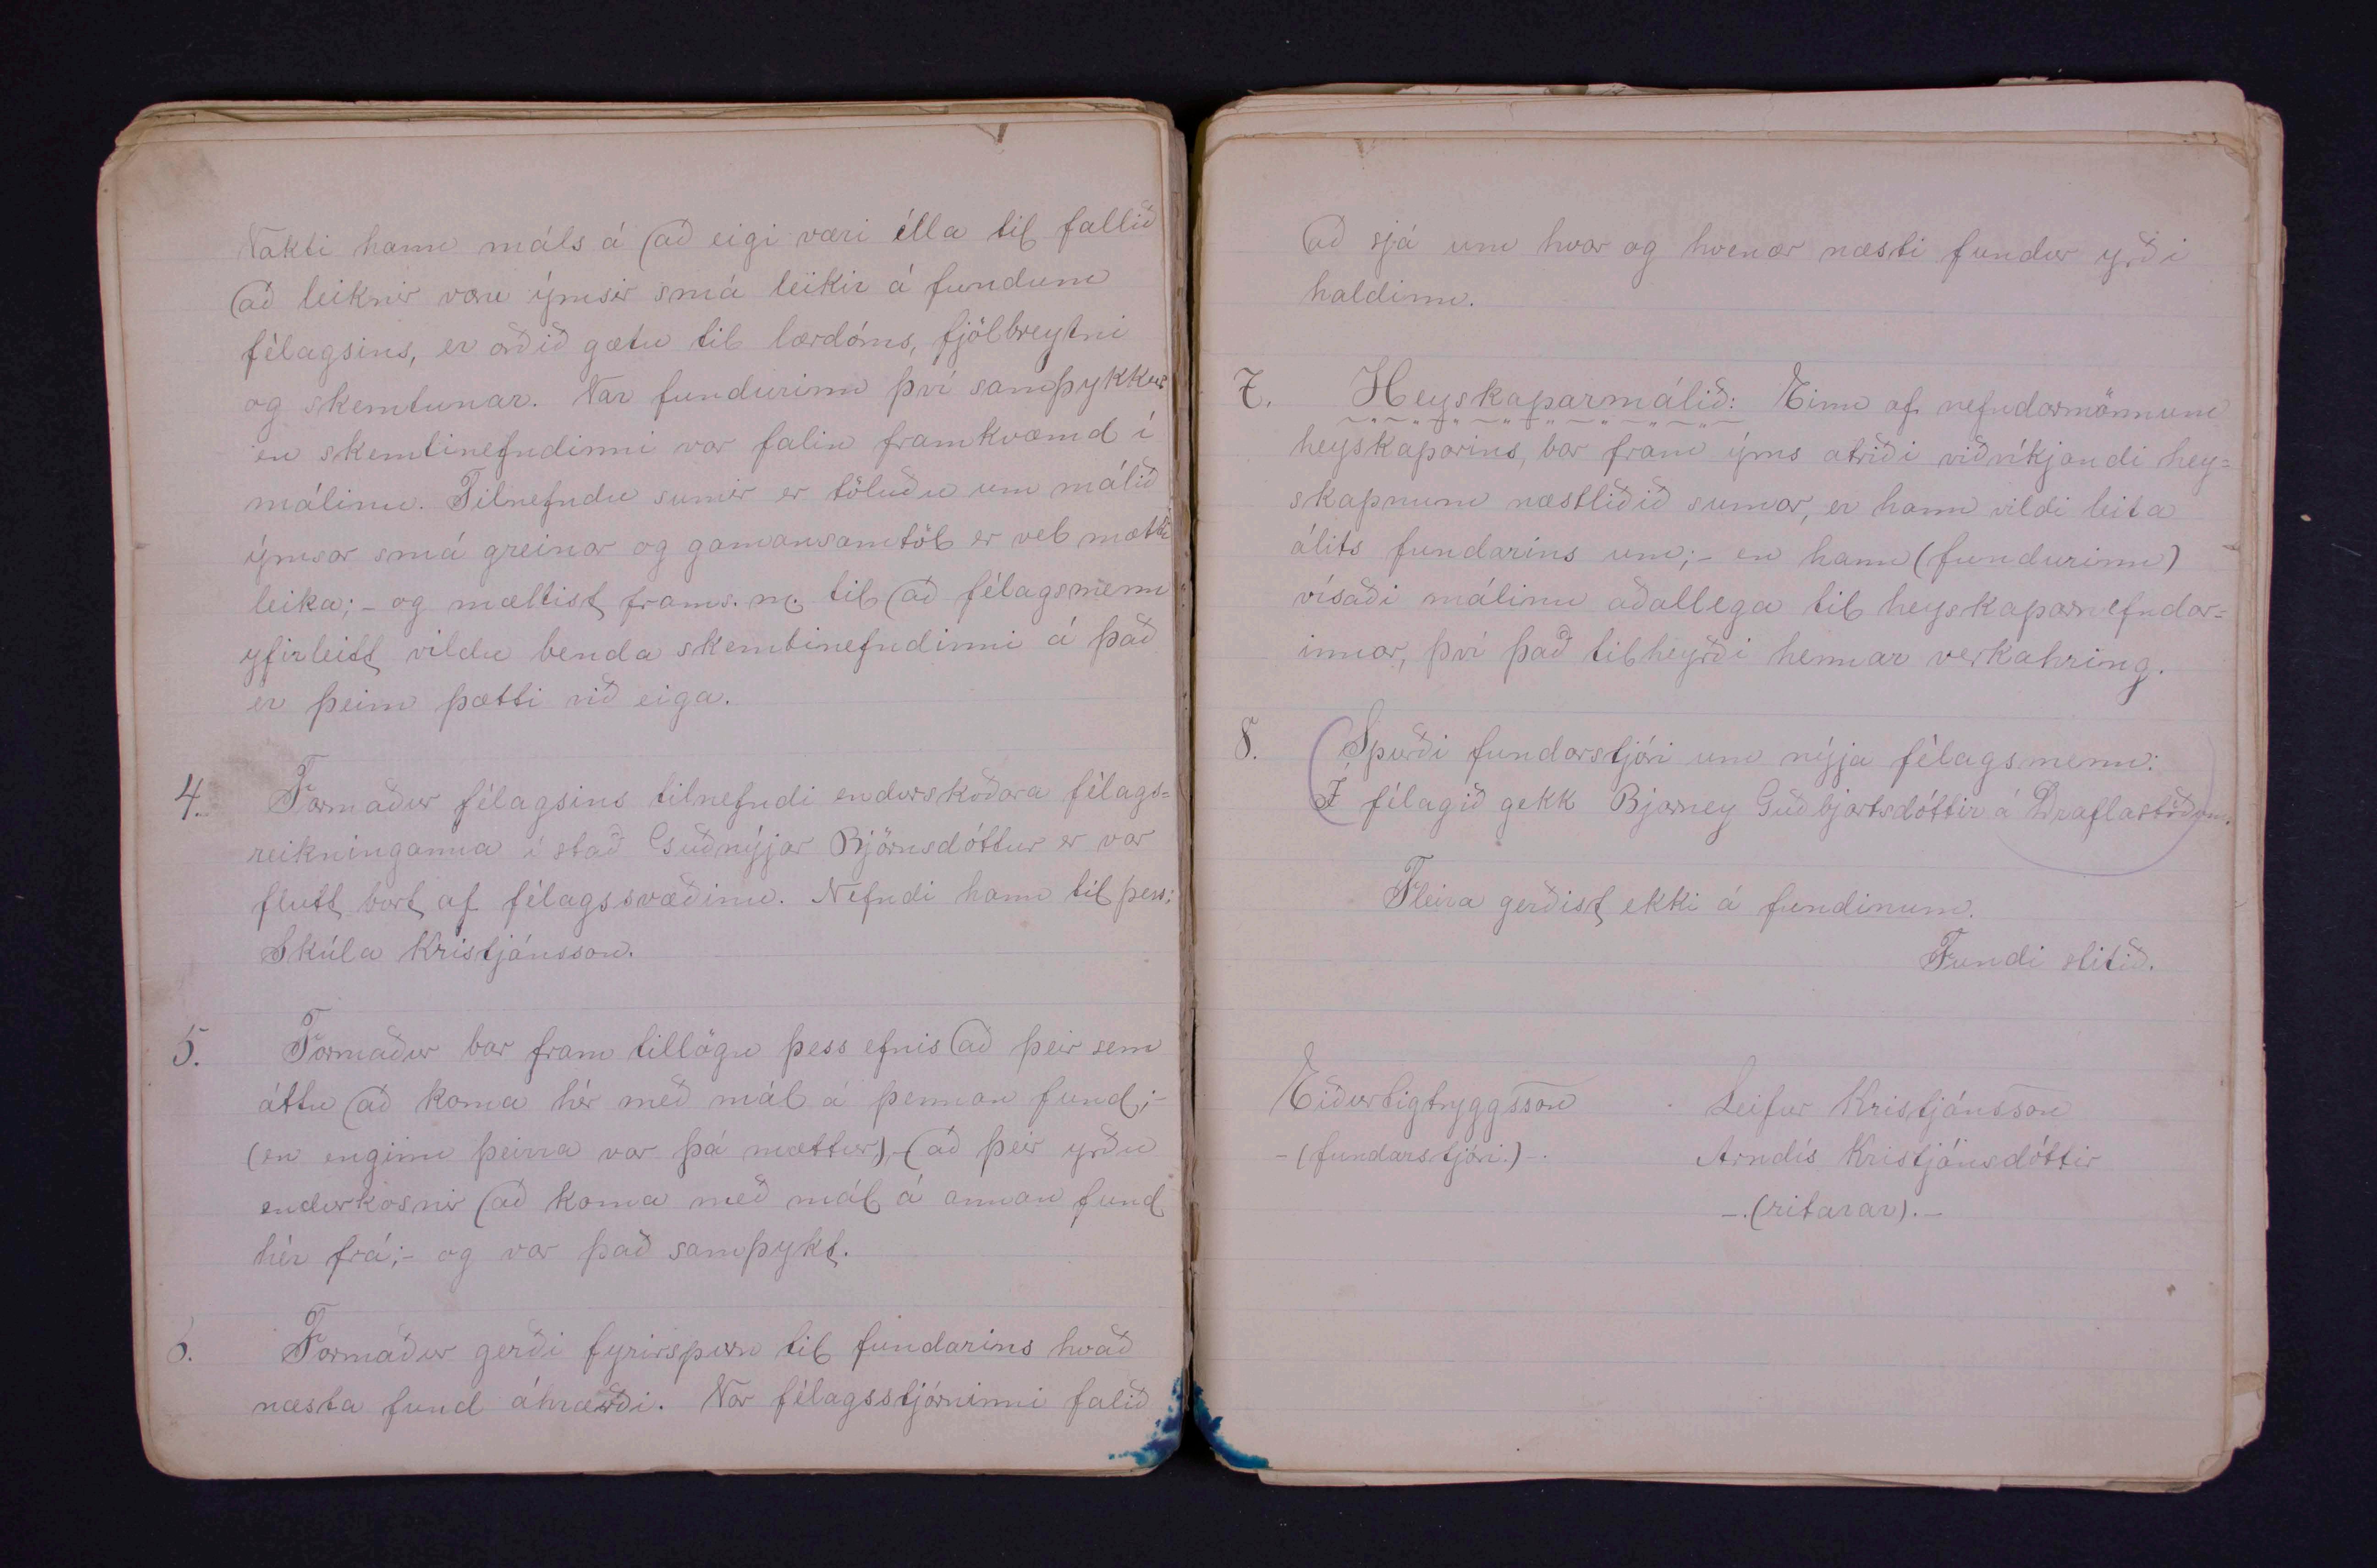 Vakti hann máls á að eigi væri illa til fallið
að leiknir væru ýmsir smá leikir á fundum
félagsins, er orðið gætu til lærdóms, fjölbreytni
og skemtunar. Var fundurinn því samþykkur
en skemtinefndinni var falin framkvæmd í
málinu. Tilnefndu sumir er töluðu um málið
ýmsar smá greinar og gamansamtöl er vel mætti
leika; - og mæltist frams. m. til að félagsmenn
yfirleitt vildu benda skemtinefndinni á það
er þeim þætti við eiga.
4. Formaður félagsins tilnefndi endurskoðara félags=
reikninganna í stað Guðnýjar Björnsdóttur er var
flutt bort af félagssvæðinu. Nefndi hann til þess:
Skúla Kristjánsson.
5. Formaður bar fram tillögu þess efnis að þeir sem
áttu að koma hér með mál á þennan fund; -
(en enginn þeirra var þá mættur), - að þeir yrðu
endurkosnir að koma með mál á annan fund
hér frá; - og var það samþykt.
6. Formaður gerði fyrirspurn til fundarins hvað
næsta fund áhrærði. Var félagsstjórninni falið
að sjá um hvar og hvenær næsti fundur yrði
haldinn.
7. Heyskaparmálið: Einn af nefndarmönnum
heyskaparins, bar fram ýms atriði viðvíkjandi hey=
skapnum næstliðið sumar, er hann vildi leita
álits fundarins um; - en hann (fundurinn)
vísaði málinu aðallega til heyskaparnefndar=
innar, því það tilheyrði hennar verkahring.
8. Spurði fundarstjóri um nýja félagsmenn:
Í félagið gekk Bjarney Guðbjartsdóttir á Draflastöðum.
Fleira gerðist ekki á fundinum.
Fundi slitið.
Eiður Sigtryggsson
- (fundarstjóri.) -.
Leifur Kristjánsson
Arndís Kristjánsdóttir
-. (ritarar). -